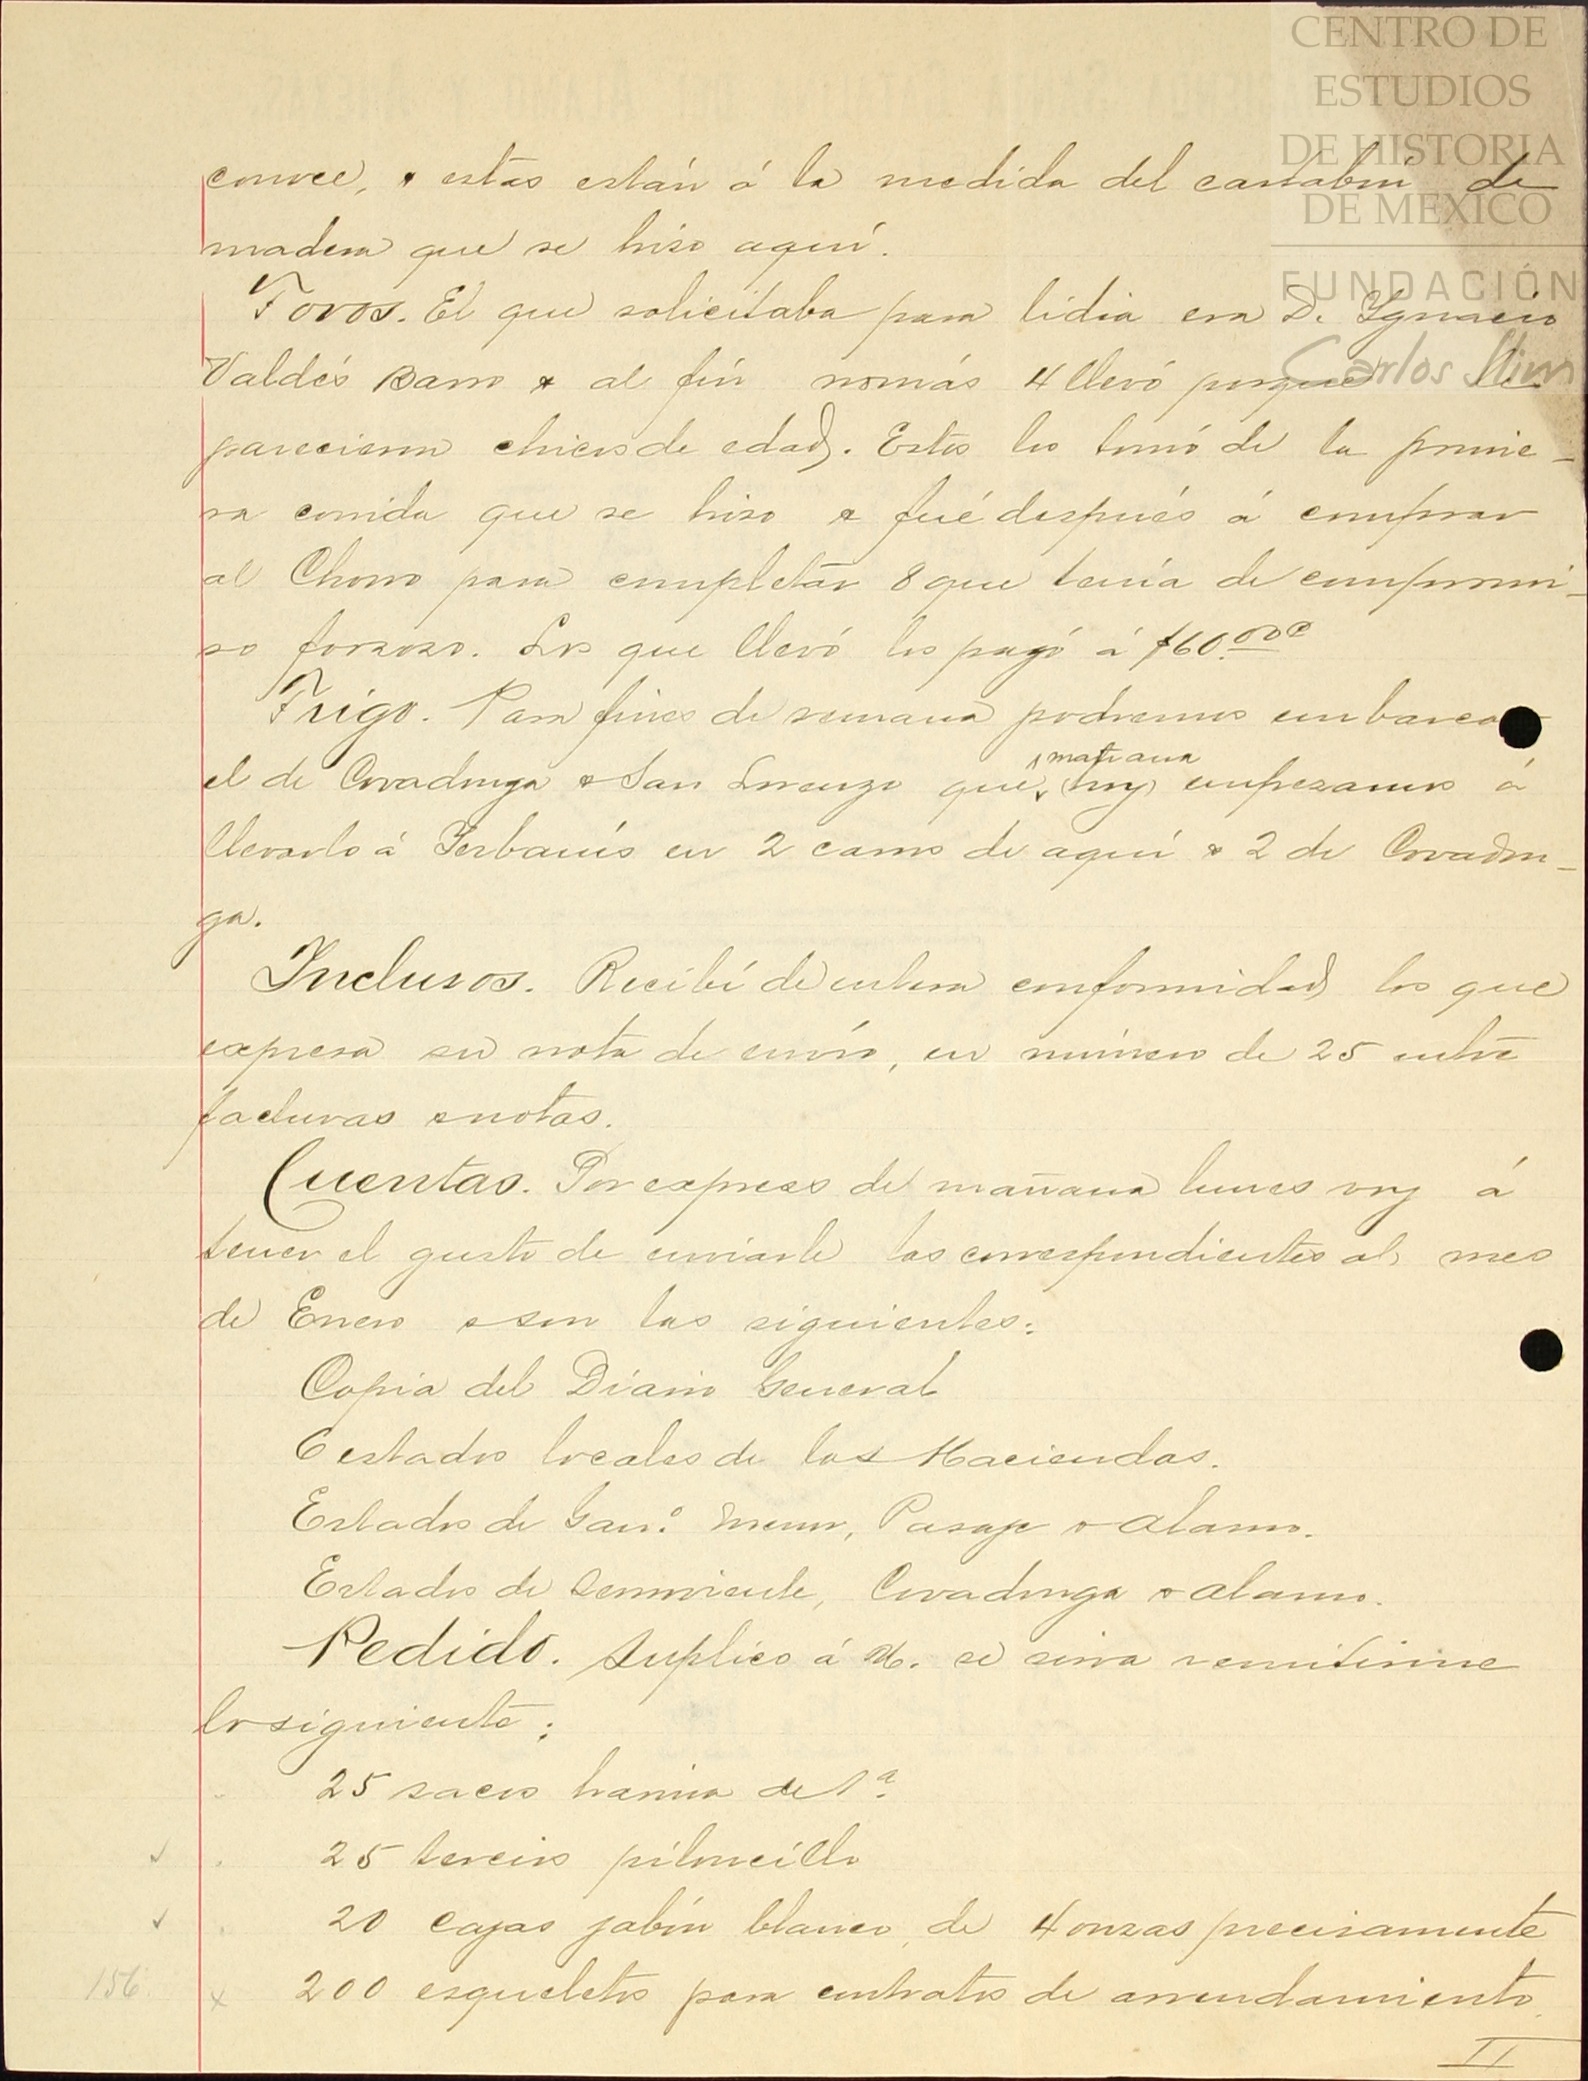 CENTRO DE
ESTUDIOS
DE HISTORIA
DE MEXICO
FUNDACIÓN
Carlos Slim
conoce, & estas están á la medida del cartabón de
madera que se hiso aquí.
Toros. El que solicitaba para lidia era D. Ygnacio
Valdés Barro & al fín nomás 4 llevó porque le
parecieron chicos de edad. Estos los tomó de la prime-
ra corrida que se hiso & fué después á comprar
al Chorro para completar 8 que tenía de compromi-
so forzoso. Los que llevó los pagó á $60.00 c
Trigo. Para fines de semana podremos embarcar
el de Covadonga & San Lorenzo que mañana (hoy) empezamos á
llevarlo á Yerbanís en 2 carros de aquí & 2 de Covadon-
ga.
Inclusos. Recibí de entera conformidad los que
expresa su nota de envío, en número de 25 entre
facturas & notas.
Cuentas. Por express de mañana lunes voy á
tener el gusto de enviarle las correspondientes al mes
de Enero & son las siguientes:
Copia del Diario General
6 estados locales de las Haciendas.
Estados de Gan.º menor, Pasaje & Alamo.
Estados de Semoviente, Covadonga & Alamo.
Pedido. Suplico á U. se sirva remitirme
lo siguiente:
25 sacos harina de 1ª.
25 tercios piloncillo
20 cajas jabón blanco, de 4 onzas precisamente
156. x 200 esqueletos para contratos de arrendamiento.
II